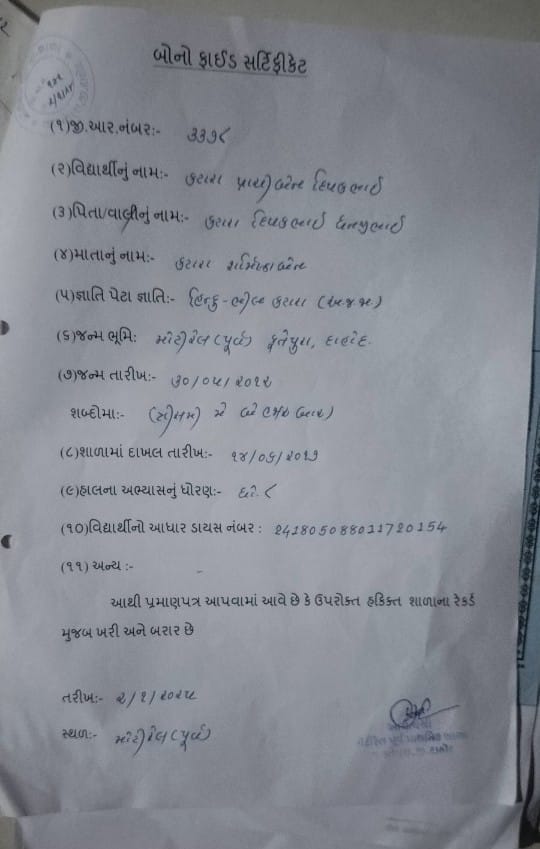 બોનો ફાઈડ સર્ટિફીકેટ
(૧)જી.આર.નંબર:- ૩૩૭૮
(૨)વિદ્યાર્થીનું નામ:- કટારા પ્રાચીબેન દિપકભાઈ
(૩)પિતા/વાલીનું નામ:- કટારા દિપકભાઈ ધનજીભાઈ
(૪)માતાનું નામ:- કટારા શર્મિષ્ઠાબેન
(૫)જ્ઞાતિ પેટા જ્ઞાતિ:- હિન્દુ - ભીલ કટારા (અ.જ.જા)
(૬)જન્મ ભૂમિ: મોટીરેલ(પૂર્વ) ફતેપુરા, દાહોદ.
(૭)જન્મ તારીખ:- ૩૦/૦૫/૨૦૧૨
શબ્દોમા:- (ત્રીસ) મે બે હજાર બાર
(૮)શાળામાં દાખલ તારીખ:- ૧૪/૦૬/૨૦૧૭
(૯)હાલના અભ્યાસનું ધોરણ:- ધો. ૮
(૧૦)વિદ્યાર્થીનો આધાર ડાયસ નંબર : 241805088011720154
(૧૧) અન્ય :- –
આથી પ્રમાણપત્ર આપવામાં આવે છે કે ઉપરોક્ત હકિક્ત શાળાના રેકર્ડ
મુજબ ખરી અને બરાર છે
તરીખ:- ૨/૧/૨૦૨૫
સ્થળ:- મોટીરેલ(પૂર્વ)